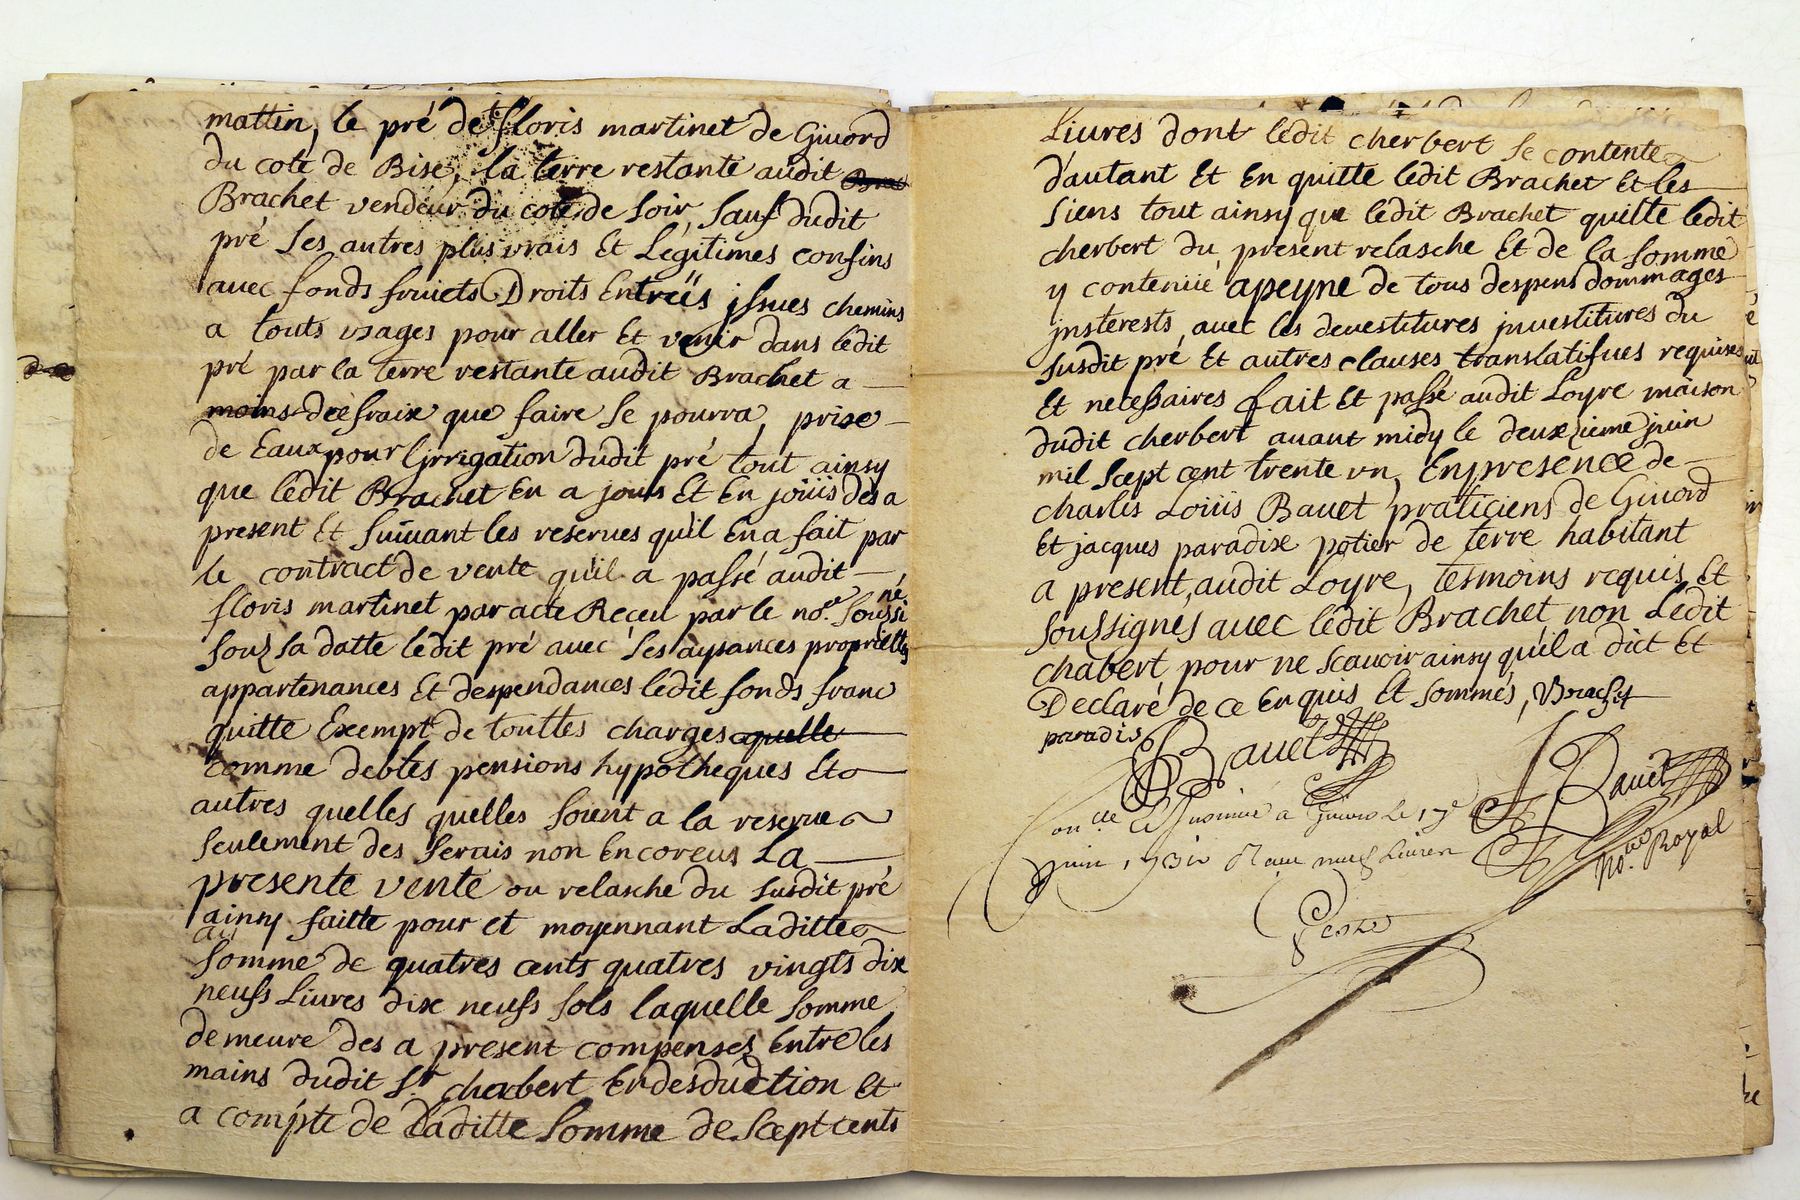 mattin, le pré de St floris martinet de Givord
du coté de Bise, la terre restante audit Brac
Brachet vendeur du coté de soir, sauf dudit
pré ses autres plus vrais Et Legitimes confins
avec fonds fruicts Droits Entréés jssues chemins
a touts usages pour aller Et venir dans ledit
pré par la terre restante audit Brachet a
moins deefraix que faire se pourra, prise
de Eaux pour Ljrrigation dudit pré tout ainsy
que ledit Brachet En a jouis Et En joüis dés a
present Et suivant les reserves qu'il En a fait par
le contract de vente qu'il a passé audit
floris martinet par acte Reçeu par le no.re soussi
né
soux sa datte ledit pré avec ses aysances proprietés
appartenances Et despendances ledit fonds franc
quitte Exempt de touttes charges aquelle
comme debtes pensions hypotheques Et
autres quelles quelles soient a la reserve
seulement des servis non Encoreus La
presente vente ou relasche du susdit pré
ainsy faitte pour et moyennant Laditte
somme de quatres cents quatres vingts dix
neufs Livres dix neufs sols laquelle somme
demeure des a present compenses Entre les
mains dudit Sr. cherbert En desduction Et
a compte de Laditte somme de Scept cents
Livres dont ledit cherbert se contente
d'autant Et En quitte ledit Brachet Et les
siens tout ainsy que ledit Brachet quitte ledit
cherbert du present relasche Et de la somme
y contenüe apeyne de tous despens dommages
jnsterests avec les devestitures jnvestitures du
susdit pré Et autres clauses translatifves requises
Et necessaires fait Et passé audit Loyre maison
dudit cherbert avant midy le deuxzieme juin
mil Scept cent trente un, En presence de
charles Loüis Bavet praticiens de Givord
Et jacques paradix potier de terre habitant
a present, audit Loyre, tesmoins requis Et
soussignes avec ledit Brachet non Ledit
chabert pour ne scavoir ainsy qu'il a dict Et
Declaré de ce Enquis Et sommés, Brachet
paradis Bavet Bavet
no.re Royal
a Givors Le 17e
juin 1731 neuf Livres